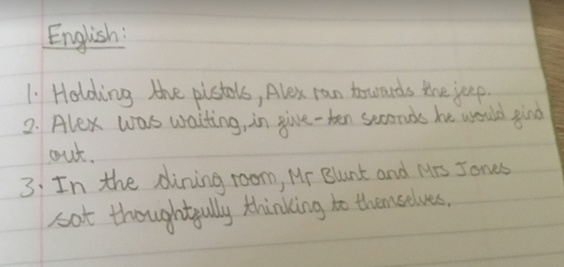 English:
1. Holding the pistols, Alex ran towards the jeep.
2. Alex was waiting, in five-ten seconds he would find
out.
3. In the dining room, Mr Blunt and Mrs Jones
sat thoughtfully thinking to themselves.